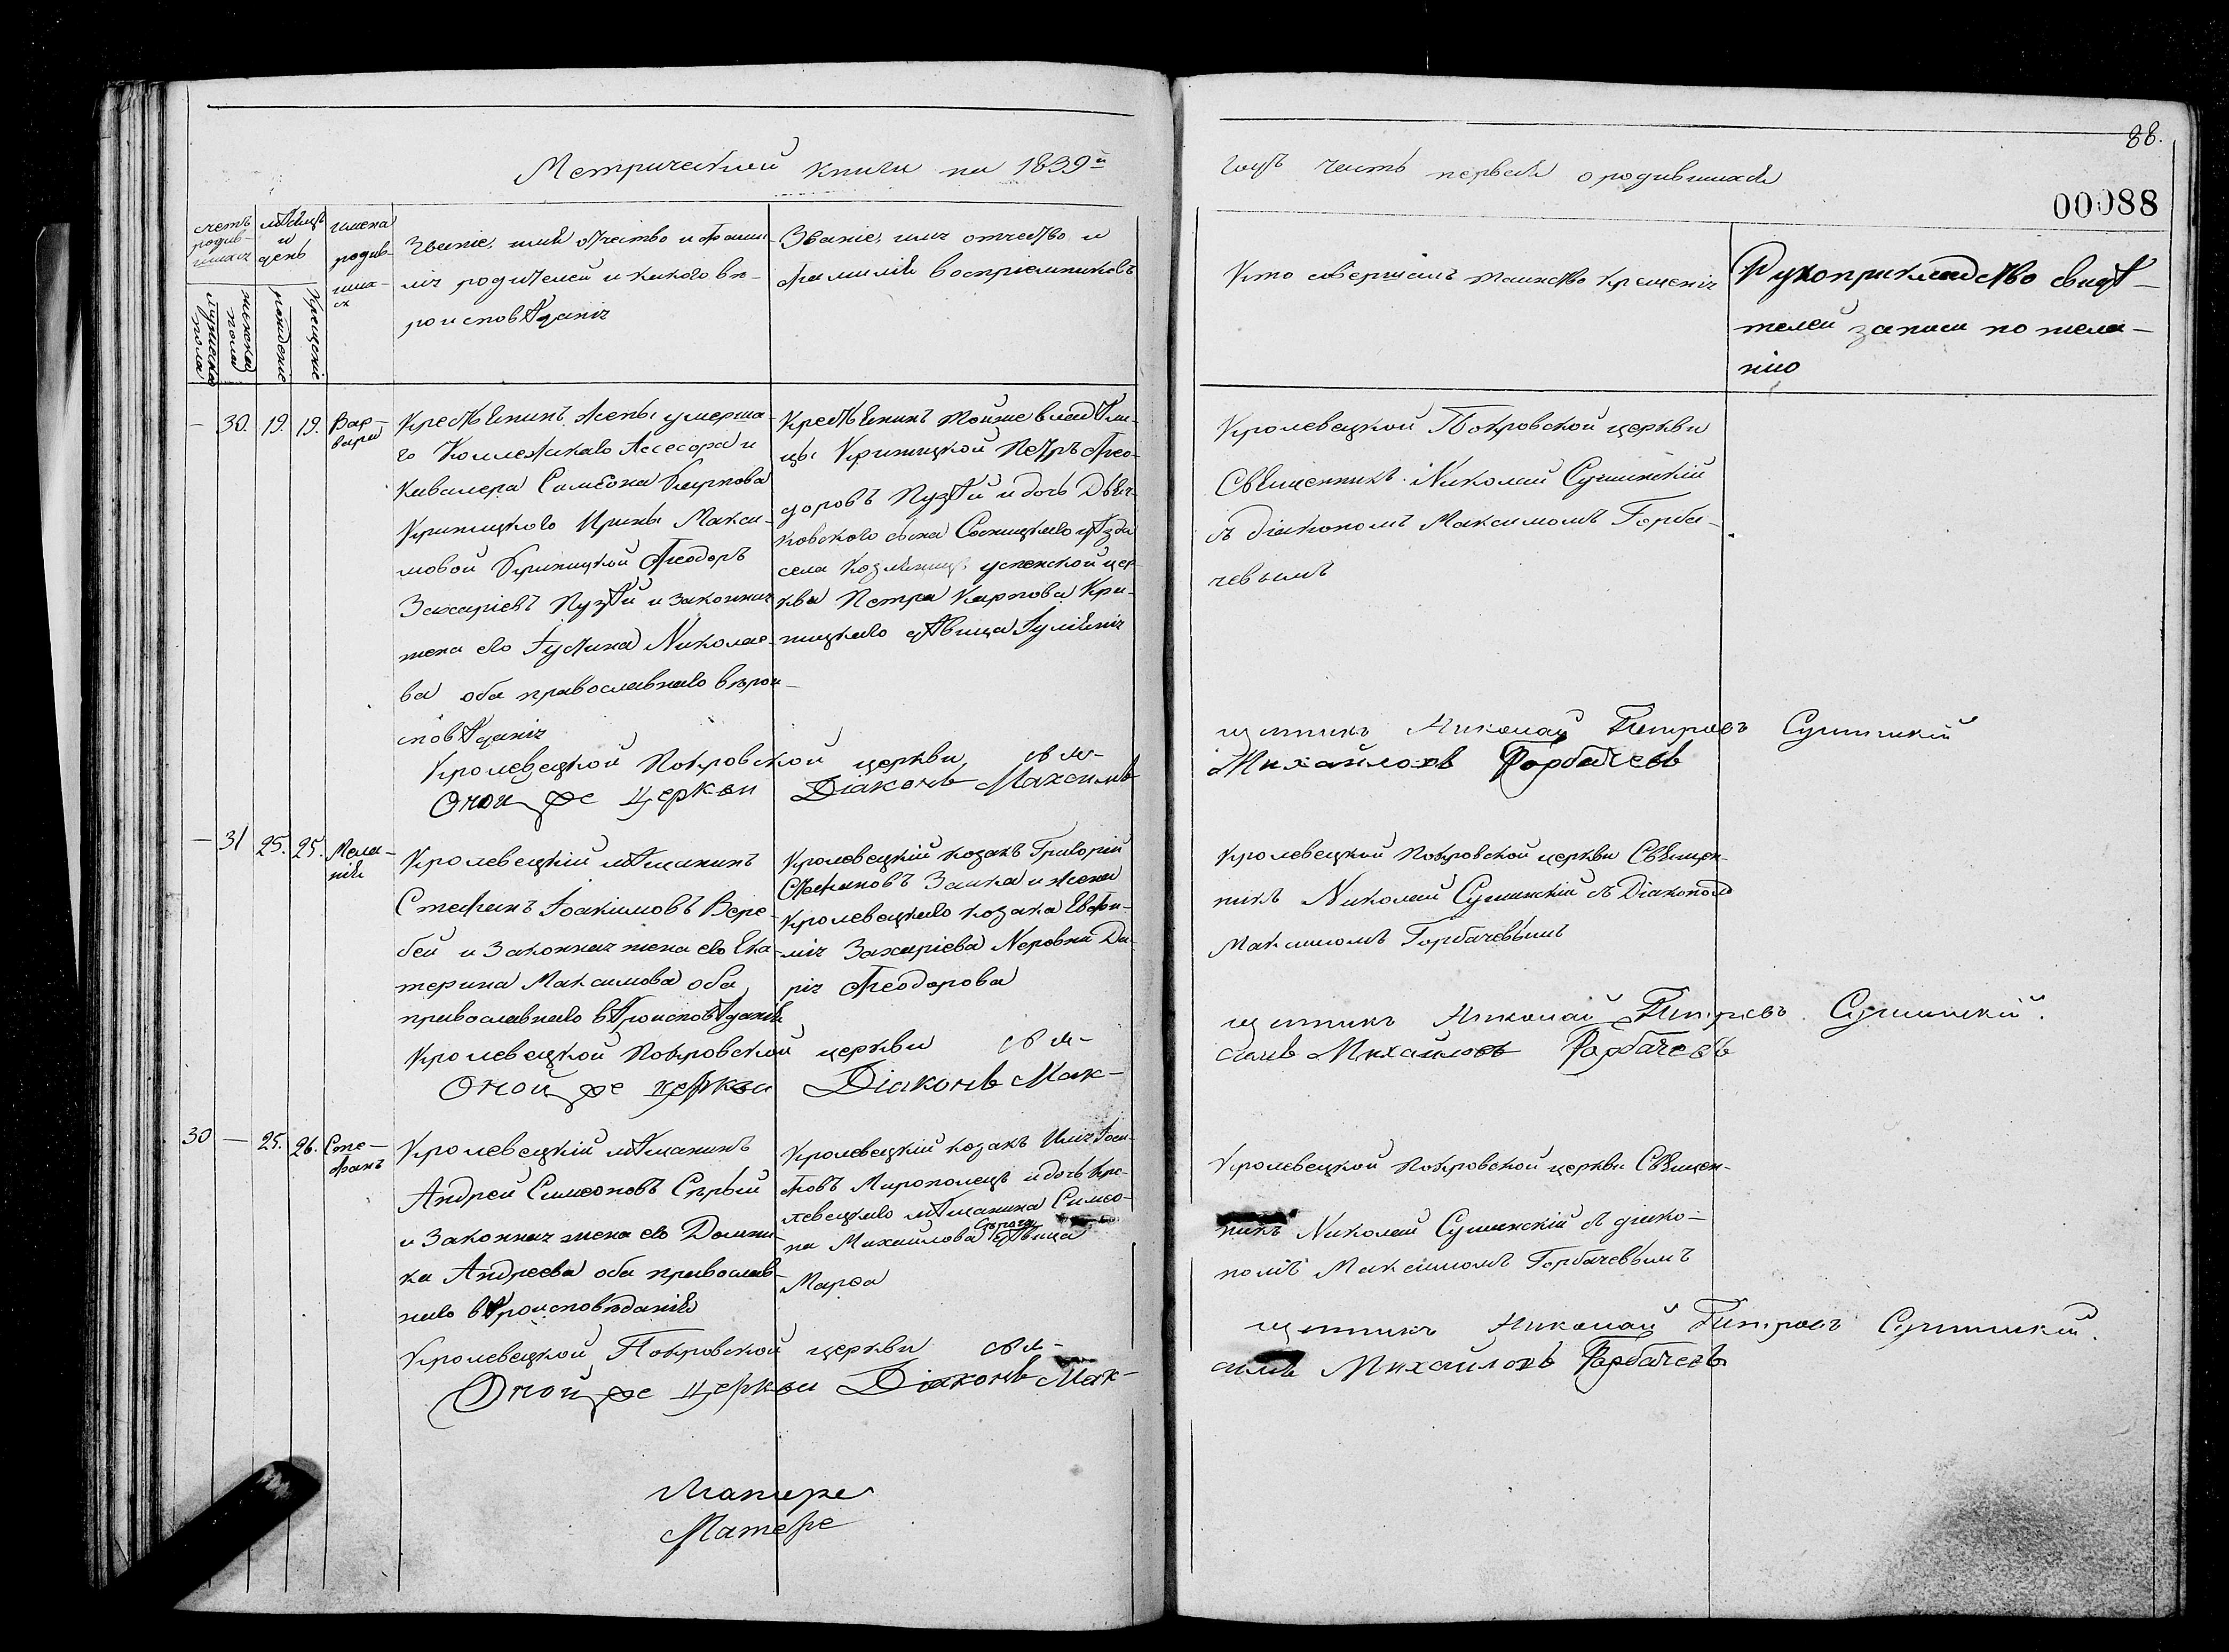 Метрической книги на 1839й
годъ часть первая о родившихся
88.
00088
счетъ родив-шихся
мѣсяцъ и день
имена родив-ших-ся
Званіе, имя отчество и фами-
лія родителей и какого вѣ-
роисповѣданія
Званіе, имя отчество и
фамилія воспріемниковъ
Кто совершалъ таинство крещенія
Рукоприкладство свидѣ-
телей записи по жела-
нію
мужеска пола
женска пола
рожденіе
крещеніе
— 30. 19. 19. Вар-
вара
Крестьянинъ жены умерша-
го Коллежскаго Ассесора и
Кавалера Симеона Карпова
Криницкого Ирины Макси-
мовой Криницкой Феодоръ
Захаріевъ Пузѣй и законная
жена его Іустина Николае-
ва оба православнаго вѣрои-
сповѣданія
Крестьянинъ тойже владѣли-
цы Криницкой Петръ Фео-
доровъ Пузѣй и дочь Дьяч-
ковского сына Сосницкаго уѣзда
села успенской цер-
кви Петра Карпова Кри-
ницкаго дѣвица Іуліанія
Кролевецкой Покровской церкви
Священникъ Николай Сушинскій
съ діакономъ Максимомъ Горба-
чевымъ
Кролевецкой Покровской церкви, свя-
щенникъ Николай Петровъ Сушинскій
Оной же церкви Діаконъ Максимъ
Михайловъ Горбачевъ
— 31 25. 25. Мела-
нія
Кролевецкій мѣщанинъ
Стефанъ Іоакимовъ Вере-
бей и Законная жена его Ека-
терина Максимова оба
православнаго вѣроисповѣданія
Кролевецкій козакъ Григорій
Стефановъ Заика и жена
Кролевецкаго козака Евфи-
мія Захаріева Неровни Да-
рія Феодорова
Кролевецкой Покровской церкви Священ-
никъ Николай Сушинскій съ Діакономъ
Максимомъ Горбачевымъ
Кролевецкой Покровской церкви свя-
щенникъ Николай Петровъ Сушинскій.
Оной же церкви Діаконъ Мак-
симъ Михайловъ Горбачевъ
30 — 25. 26. Сте-
фанъ
Кролевецкій мѣщанинъ
Андрей Симеоновъ Сѣрый
и Законная жена его Домни-
ка Андреева оба православ-
наго вѣроисповѣданія
Кролевецкій козакъ Илія Іоси-
фовъ Мирополецъ и дочь Кро-
левецкаго мѣщанина Симео-
на Михайлова Сѣрого дѣвица
Марѳа
Кролевецкой Покровской церкви Священ-
никъ Николай Сушинскій съ діако-
номъ Максимомъ Горбачевымъ
Кролевецкой Покровской церкви свя-
щенникъ Николай Петровъ Сушинскій.
Оной же церкви Діаконъ Мак-
симъ Михайловъ Горбачевъ